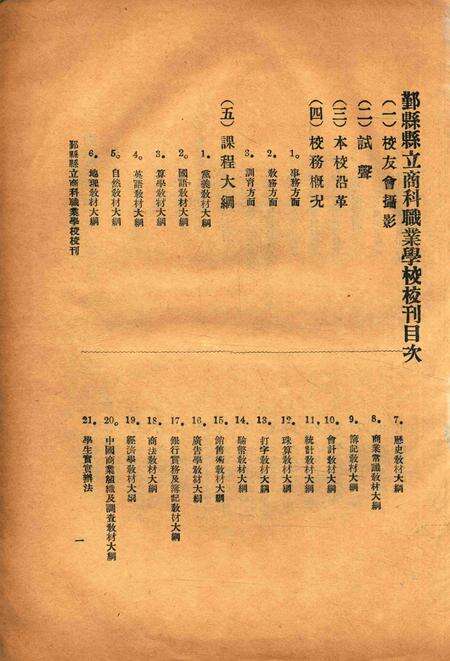 鄞縣縣立商科職業學校校刊目次
(一)校友會攝影
(二)試聲
(三)本校沿革
(四)校務槪况
1。事務方面
2。敎務方面
3。訓育方面
(五)課程大綱
1。黨義敎材大綱
2。國語敎材大綱
3。算學敎材大綱
4。英語敎材大綱
5。自然敎材大綱
6。地理敎材大綱
鄞縣縣立商科職業學校校刊
7。歷史敎材大綱
8。商業常識敎材大綱
9。簿記敎材大綱
10。會計敎材大綱
11。統計敎材大綱
12。珠算敎材大綱
13。打字敎材大綱
14。驗幣敎材大綱
15。銷售術敎材大綱
16。廣告學敎材大綱
17。銀行實務及簿記敎材大綱
18。商法敎材大綱
19。經濟學敎材大綱
20。中國商業組織及調查敎材大綱
21。學生實習辦法
一